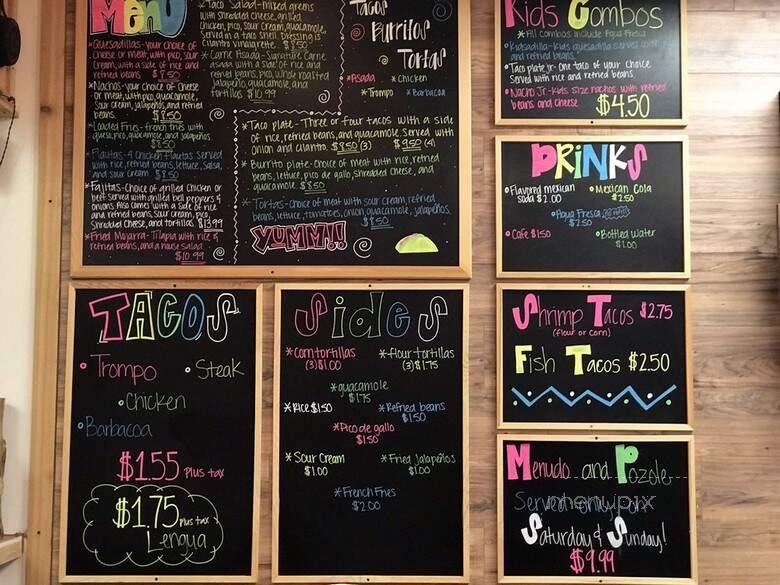 Menu
*Quesadillas-your choice of
Cheese or meat, with pico, sour
Cream, with a side of rice and
refried beans $8.50
*Nachos-your choice of cheese
or meat, with pico, guacamole,
Sour cream, jalapeños, and refried
beans. $8.50
*Loaded Fries-french fries with
queso, pico, guacamole, and jalapeños
$8.50
*Flautas-4 chicken flautas served
with rice, refried beans, lettuce, Salsa,
and sour cream $8.50
*Fajitas-Choice of grilled chicken or
beef served with grilled bell peppers &
onions. Also comes with a side of rice
and refried beans, sour cream, pico,
Shredded Cheese, and tortillas. $13.99
*Fried Mojarra-Tilapia with rice &
refried beans, and a house salad
$10.99
*Taco Salad-mixed greens
with shredded cheese, grilled
chicken, pico, sour cream, guacamole,
served in a taco shell. Dressing is
cilantro vinaigrette. $8.50
*Carne Asada-Signature Carne
asada with a side of rice and
refried beans, pico, whole roasted
jalapeño, guacamole, and
tortillas $10.99
Tacos
& Burritos
or Tortas
*Asada *Chicken
*Trompo *Barbacoa
*Taco plate-Three or four tacos with a side
of rice, refried beans, and guacamole. Served with
onion and cilantro. $7.50 (3) $9.50 (4)
*Burrito plate-choice of meat with rice, refried
beans, lettuce, pico de gallo, shredded cheese, and
guacamole $8.50
*Tortas-choice of meat with sour cream, refried
beans, lettuce, tomatoes, onion, guacamole, jalapeños.
$8.50
YUMM!!
Kids Combos
*All combos include Agua Fresca
Kidsadilla-Kids quesadilla served with rice
and refried beans
Taco plate jr-One taco of your choice
Served with rice and refried beans
Nacho Jr-Kids size nachos with refried
beans and cheese $4.50
DRINKS
Flavored mexican soda $2.00
Mexican Cola $2.50
Agua Fresca
$2.50
Cafe $1.50
Bottled water
$1.00
TACOS
Trompo Steak
Chicken
Barbacoa
$1.55 Plus tax
$1.75 Plus tax
Lengua
Sides
*Corn tortillas (3) $1.00
*flour tortillas (3) $1.75
*guacamole
$1.75
*Rice $1.50
*Refried beans $1.50
*Pico de gallo
$1.50
*Sour Cream $1.00
*Fried Jalapeños $1.00
*French Fries
$2.00
Shrimp Tacos $2.75
(flour or corn)
Fish Tacos $2.50
Menudo and Pozole
Served only on
Saturday & Sunday!
$9.99
menupix